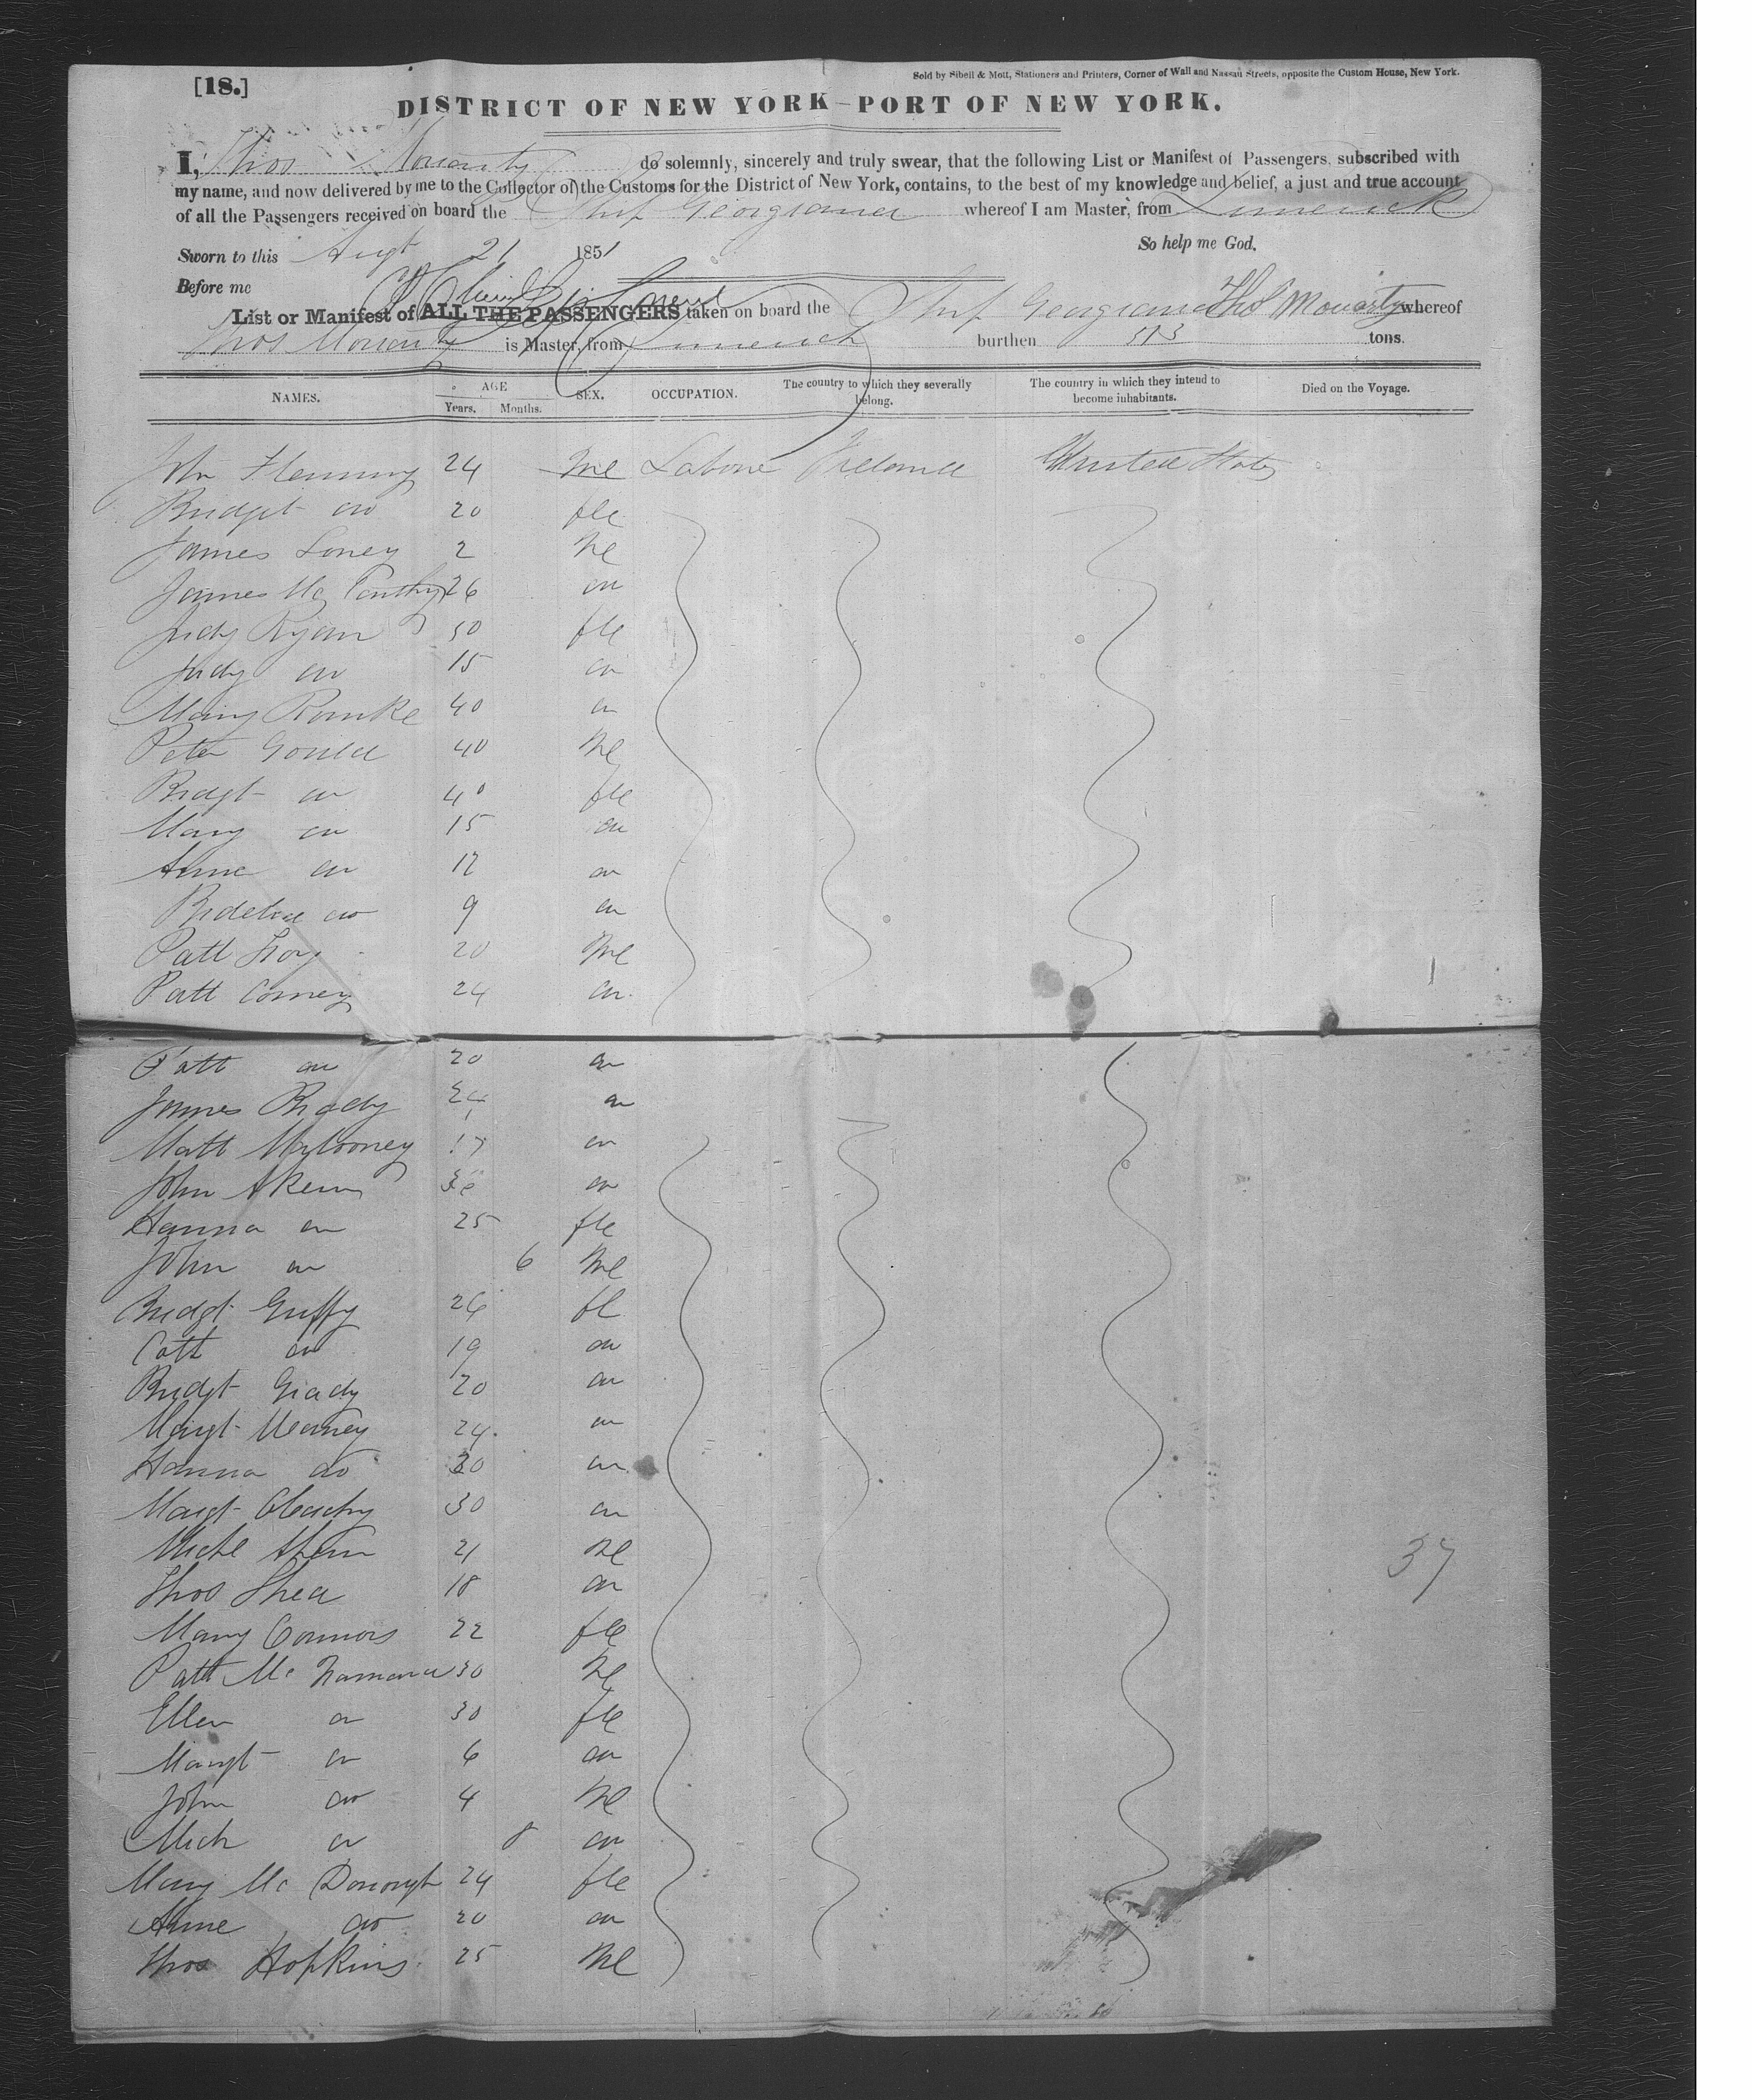 [18.]
Sold by Sibell & Mott, Stationers and Printers, Corner of Wall and Nassau Streets, opposite the Custom House, New York.
DISTRICT OF NEW YORK—PORT OF NEW YORK.
I, Thos Moriarty do solemnly, sincerely and truly swear, that the following List or Manifest of Passengers, subscribed with
my name, and now delivered by me to the Collector of the Customs for the District of New York, contains, to the best of my knowledge and belief, a just and true account
of all the Passengers received on board the Ship Georgiana whereof I am Master, from Limerick
So help me God.
Sworn to this Augt 21 1851
Before me
List or Manifest of ALL THE PASSENGERS taken on board the Ship Georgiana Thos Moriarty whereof
Thos Moriarty is Master, from Limerick burthen tons.
NAMES. AGE Years. Months. SEX. OCCUPATION. The country to which they severally belong. The country in which they intend to become inhabitants. Died on the Voyage.
John Fleming 24 Me Labore Ireland United States
Bridget do 20 fle
James Loney 2 Me
James Mc Carthy 26 do
Judy Ryan 50 fle
Judy do 15 do
Mary Rourke 40 do
Peter Gould 40 Me
Bridgt do 40 fle
Mary do 15 do
Anne do 12 do
do 9 do
Patt 20 Me
Patt 24 do
Patt do 20 do
James Brady 24 do
Matt 17 do
John do
Hanna do 25 fle
John do 6 Me
Bridgt Guffy 26 fl
Cath do 19 do
Bridgt Grady 20 do
Margt Meaney 24 do
Hanna do 30 do
Margt 30 do
Michl Ahern 21 Me
Thos Shea 18 do
37
Mary Connors 22 fle
Patt Mc Namara 30 Me
Ellen do 30 fle
Margt do 6 do
John do 4 Me
Mich do 8 do
Mary Mc Donough 24 fle
Anne do 20 do
Thos Hopkins 25 Me